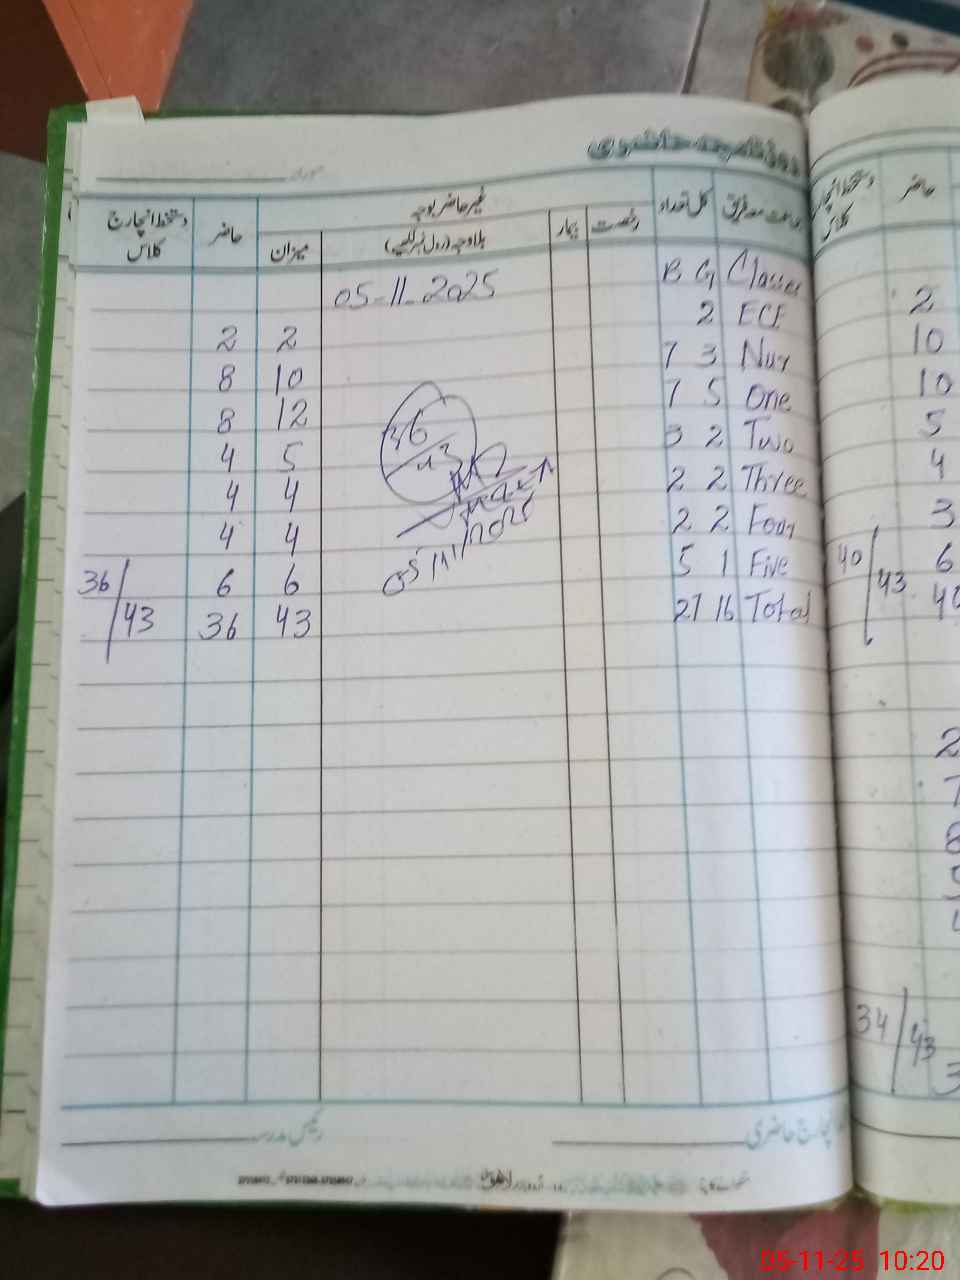 روزنامچہ حاضری
جماعت معہ فریق کل تعداد غیر حاضر بوجہ حاضر دستخط انچارج کلاس
رخصت بیمار بلاوجہ (رول نمبر لکھیے) میزان
B G Classes
05-11-2025
2 ECE 2 2
7 3 Nur 10 8
7 5 One 12 8
3 2 Two 5 4
2 2 Three 4 4
2 2 Four 4 4
5 1 Five 6 6
27 16 Total 43 36
36/43
36
43
05/11/2025
انچارج حاضری
رئیس مدرسہ
دستخط انچارج کلاس
حاضر
2
10
10
5
4
3
6
40
40/43
2
7
8
5
34/43
3
05-11-25 10:20